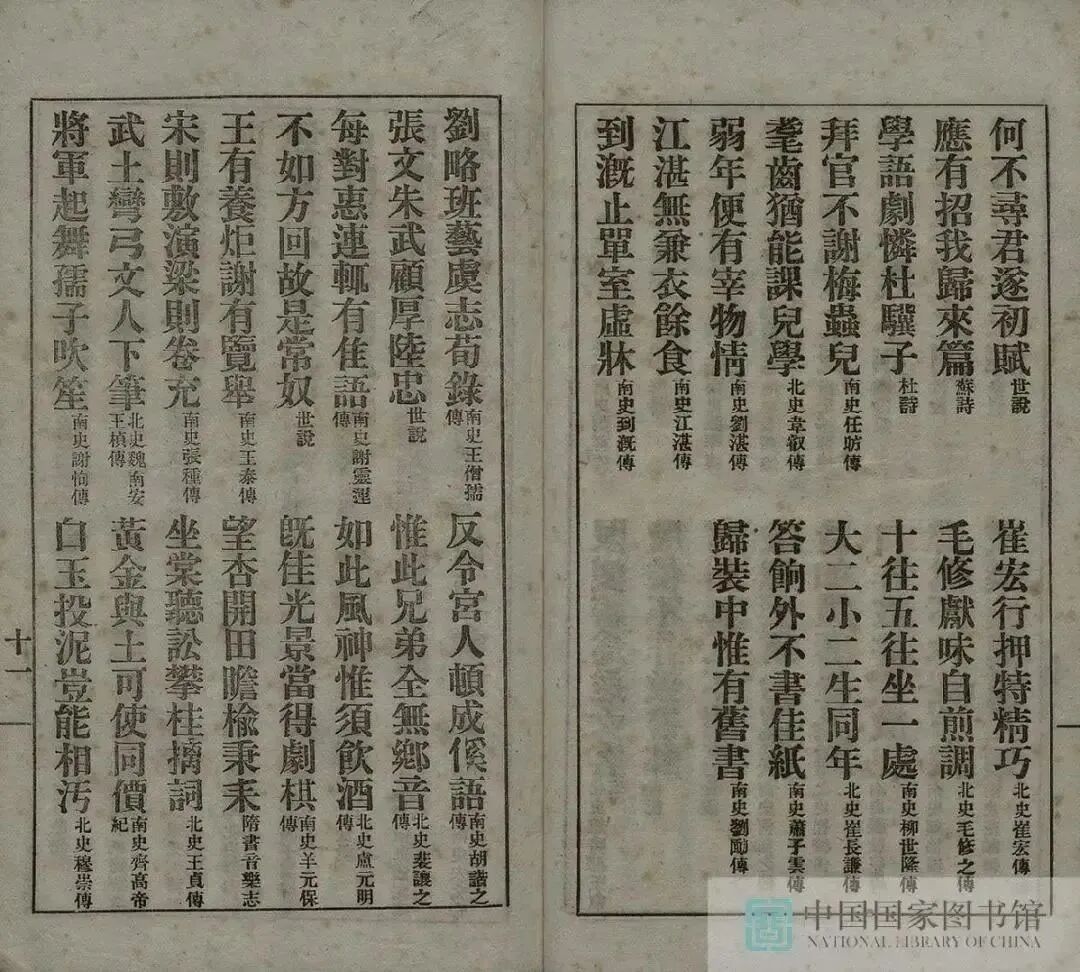 何不尋君遂初賦 世說 崔宏行押特精巧 北史崔宏傳
應有招我歸來篇 蘇詩 毛修獻味自煎調 北史毛修之傳
學語劇憐杜驥子 杜詩 十往五往坐一處 南史柳世隆傳
拜官不謝梅蟲兒 南史任昉傳 大二小二生同年 北史崔長謙傳
耄齒猶能課兒學 北史韋叡傳 答餉外不書佳紙 南史蕭子雲傳
弱年便有宰物情 南史劉湛傳 歸裝中惟有舊書 南史劉傳
江湛無兼衣餘食 南史江湛傳
到溉止單室虛牀 南史到溉傳
劉略班藝虞志荀錄 南史王僧孺傳 反令宮人頓成傒語 南史胡諧之傳
張文朱武顧厚陸忠 世說 惟此兄弟全無鄉音 北史裴讓之傳
每對惠連輒有佳語 南史謝靈運傳 如此風神惟須飲酒 北史盧元明傳
不如方回故是常奴 世說 既佳光景當得劇棋 南史羊元保傳
王有養炬謝有覽舉 南史王泰傳 望杏開田瞻榆秉耒 隋書音樂志
宋則敷演梁則卷充 南史張種傳 坐棠聽訟攀桂摛詞 北史王貞傳
武士彎弓文人下筆 北史魏南安王楨傳 黃金與土可使同價 南史齊高帝紀
將軍起舞孺子吹笙 南史謝㤭傳 白玉投泥豈能相汚 北史穆崇傳
十一
中国国家图书馆
NATIONAL LIBRARY OF CHINA